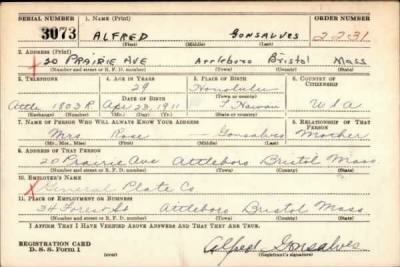 SERIAL NUMBER 1. NAME (Print) ORDER NUMBER
3073 ALFRED GONSALVES 2231
(First) (Middle) (Last)
2. ADDRESS (Print)
20 PRAIRIE AVE Attleboro Bristol Mass
(Number and street or R. F. D. number) (Town) (County) (State)
3. TELEPHONE 4. AGE IN YEARS 5. PLACE OF BIRTH 6. COUNTRY OF CITIZENSHIP
29 Honolulu
DATE OF BIRTH (Town or county)
Attle. 1803R Apr 23, 1911 T. Hawaii U S A
(Exchange) (Number) (Mo.) (Day) (Yr.) (State or country)
7. NAME OF PERSON WHO WILL ALWAYS KNOW YOUR ADDRESS 8. RELATIONSHIP OF THAT PERSON
Mrs Rose — Gonsalves Mother
(Mr., Mrs., Miss) (First) (Middle) (Last)
9. ADDRESS OF THAT PERSON
20 Prairie Ave Attleboro Bristol Mass
(Number and street or R. F. D. number) (Town) (County) (State)
10. EMPLOYER'S NAME
General Plate Co
11. PLACE OF EMPLOYMENT OR BUSINESS
34 Forest St Attleboro Bristol Mass
(Number and street or R. F. D. number) (Town) (County) (State)
I AFFIRM THAT I HAVE VERIFIED ABOVE ANSWERS AND THAT THEY ARE TRUE.
REGISTRATION CARD
D. S. S. Form 1 (over) Alfred Gonsalves
(Registrant's signature)